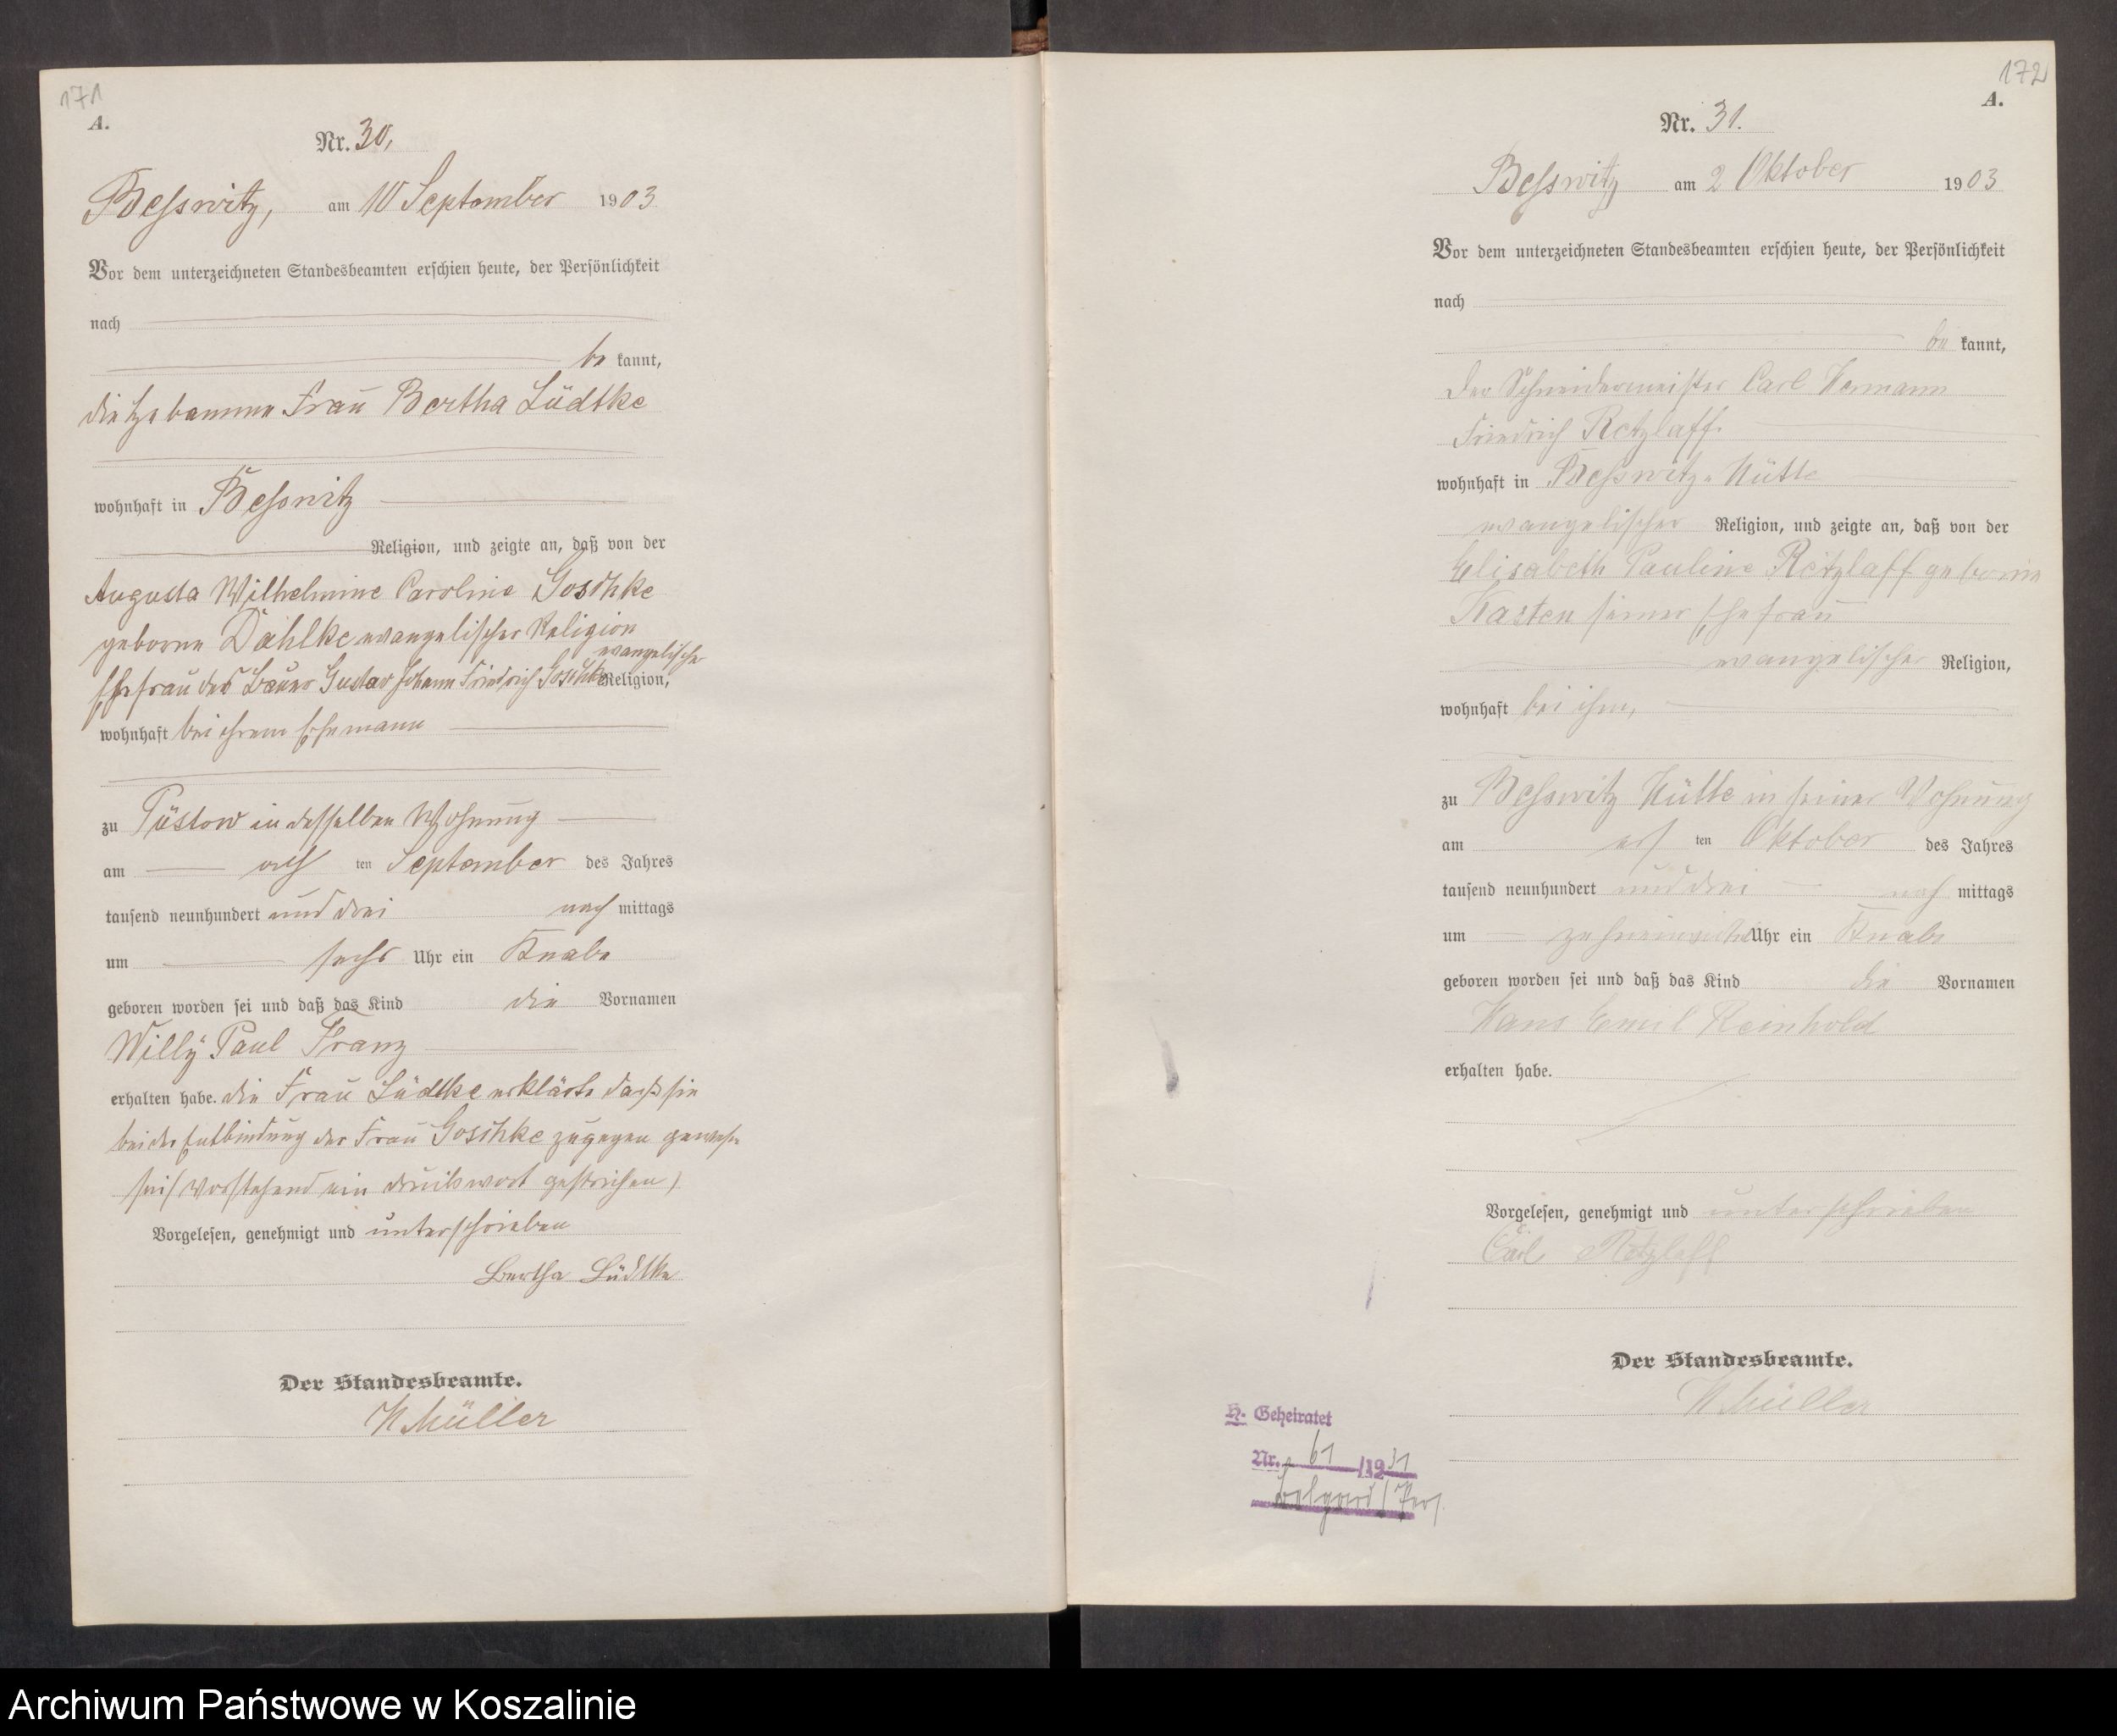 171
A.
Nr. 30,
Besswitz, am 10 September 1903
Vor dem unterzeichneten Standesbeamten erschien heute, der Persönlichkeit
nach
be kannt,
die Hebamme Frau Bertha Lüdtke
wohnhaft in Besswitz
Religion, und zeigte an, daß von der
Augusta Wilhelmine Caroline Goschke
geborne Dahlke evangelischer Religion
evangelischer
Ehefrau des Bauer Gustav Johann Friedrich Goschke Religion,
wohnhaft bei ihrem Ehemann
zu Püstow in desselben Wohnung
am acht ten September des Jahres
tausend neunhundert und drei nach mittags
um sechs Uhr ein Knabe
geboren worden sei und daß das Kind die Vornamen
Willy Paul Franz
erhalten habe. die Frau Lüdtke erklärte dass sie
bei der Entbindung der Frau Goschke zugegen gewesen
sei (Vorstehend ein Druckwort gestrichen)
Vorgelesen, genehmigt und unterschrieben
Bertha Lüdtke
Der Standesbeamte.
H Müller
172
A.
Nr. 31.
Besswitz am 2 Oktober 1903
Vor dem unterzeichneten Standesbeamten erschien heute, der Persönlichkeit
nach
be kannt,
der Schneidermeister Carl Hermann
Friedrich Retzlaff.
wohnhaft in Besswitz Hütte
evangelischer Religion, und zeigte an, daß von der
Elisabeth Pauline Retzlaff geborne
Kasten seiner Ehefrau
evangelischer Religion,
wohnhaft bei ihm,
zu Besswitz Hütte in seiner Wohnung
am ers ten Oktober des Jahres
tausend neunhundert und drei nach mittags
um Uhr ein Knabe
geboren worden sei und daß das Kind die Vornamen
Hans Emil Reinhold
erhalten habe.
Vorgelesen, genehmigt und unterschrieben
Carl Retzlaff
Der Standesbeamte.
H Müller
H. Geheiratet
Nr. 61 /1931
Belgard/Pers.
Archiwum Państwowe w Koszalinie